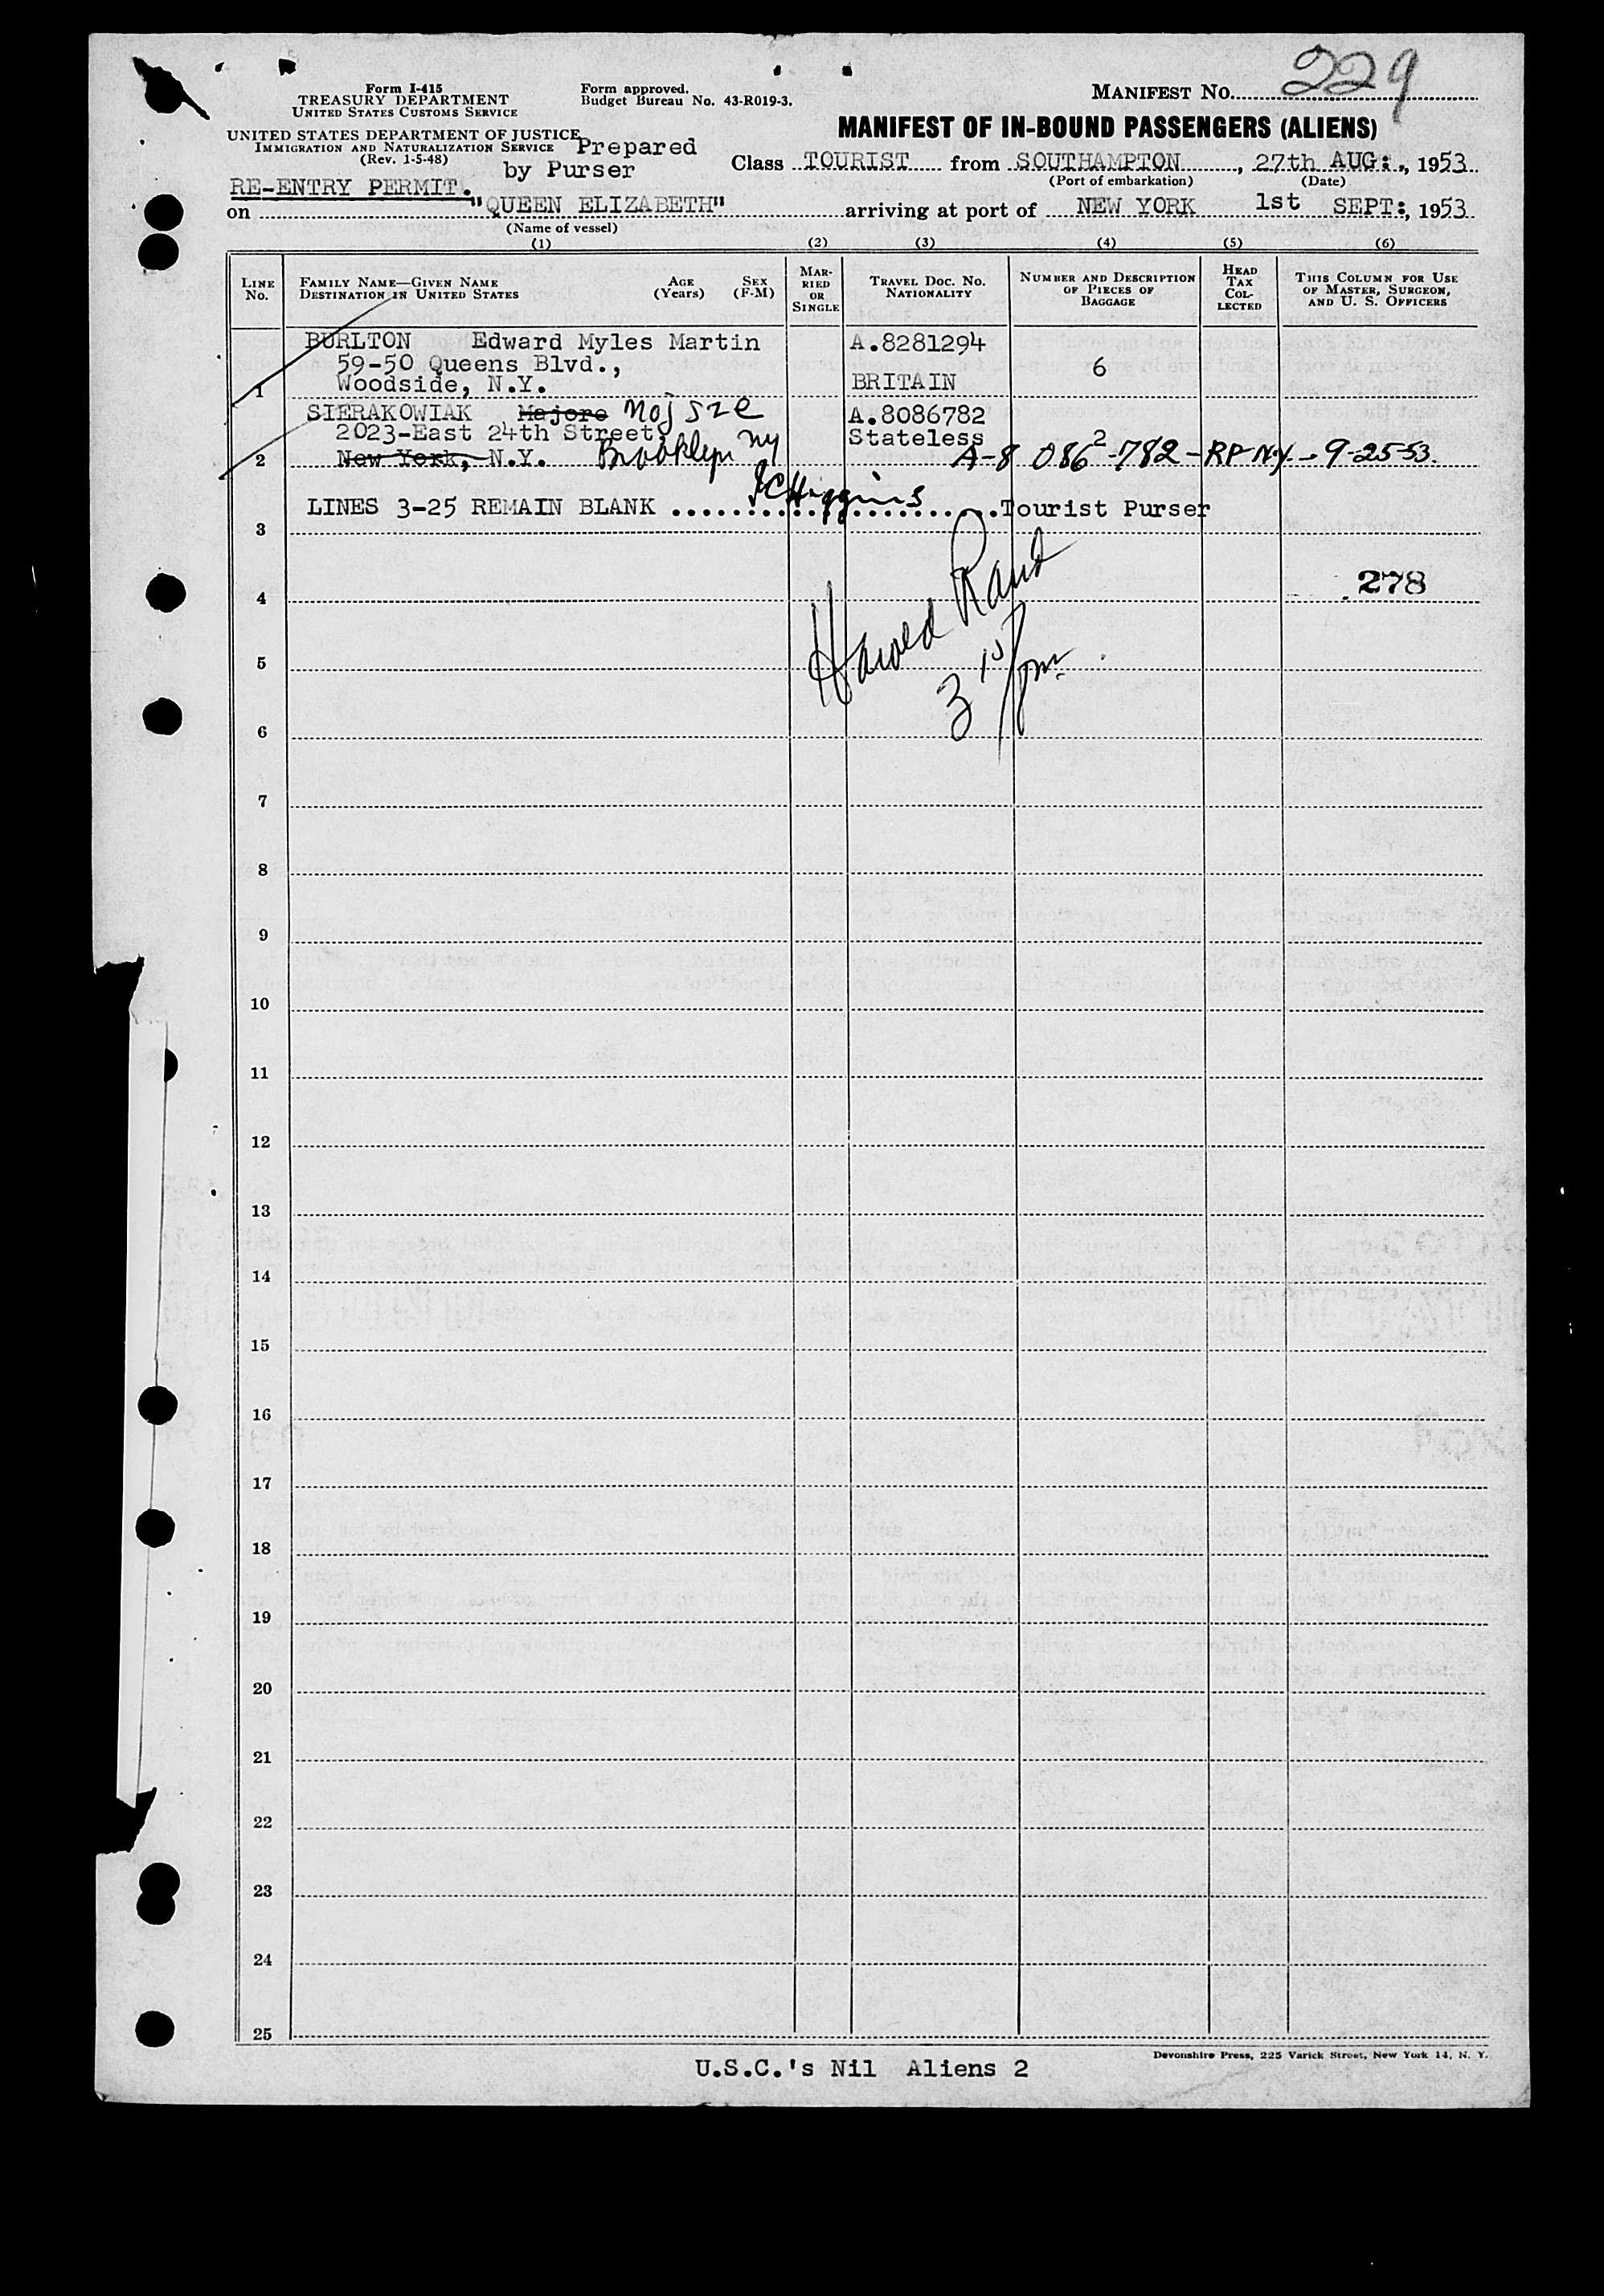 229
Form I-415
TREASURY DEPARTMENT
UNITED STATES CUSTOMS SERVICE
Form approved.
Budget Bureau No. 43-R019-3.
MANIFEST NO.
UNITED STATES DEPARTMENT OF JUSTICE
IMMIGRATION AND NATURALIZATION SERVICE
(Rev. 1-5-48)
Prepared
by Purser
MANIFEST OF IN-BOUND PASSENGERS (ALIENS)
Class TOURIST from SOUTHAMPTON, 27th AUG:, 1953
(Port of embarkation) (Date)
RE-ENTRY PERMIT.
on "QUEEN ELIZABETH" arriving at port of NEW YORK 1st SEPT:, 1953
(Name of vessel)
(1) (2) (3) (4) (5) (6)
LINE No.
FAMILY NAME—GIVEN NAME
DESTINATION IN UNITED STATES
AGE (Years)
SEX (F-M)
MAR-RIED OR SINGLE
TRAVEL DOC. NO. NATIONALITY
NUMBER AND DESCRIPTION OF PIECES OF BAGGAGE
HEAD TAX COL-LECTED
THIS COLUMN FOR USE OF MASTER, SURGEON, AND U. S. OFFICERS
BURLTON Edward Myles Martin A.8281294
59-50 Queens Blvd., 6
1 Woodside, N.Y. BRITAIN
SIERAKOWIAK Majore Mojsze A.8086782
2023-East 24th Street, Stateless 2
2 New York, N.Y. Brooklyn NY A-8 086-782-RP NY - 9-25-53.
LINES 3-25 REMAIN BLANK ........ Tourist Purser
JCHiggins
3
Harold Rand
3 10/pm
278
4
5
6
7
8
9
10
11
12
13
14
15
16
17
18
19
20
21
22
23
24
25
Devonshire Press, 225 Varick Street, New York 14, N. Y.
U.S.C.'s Nil Aliens 2